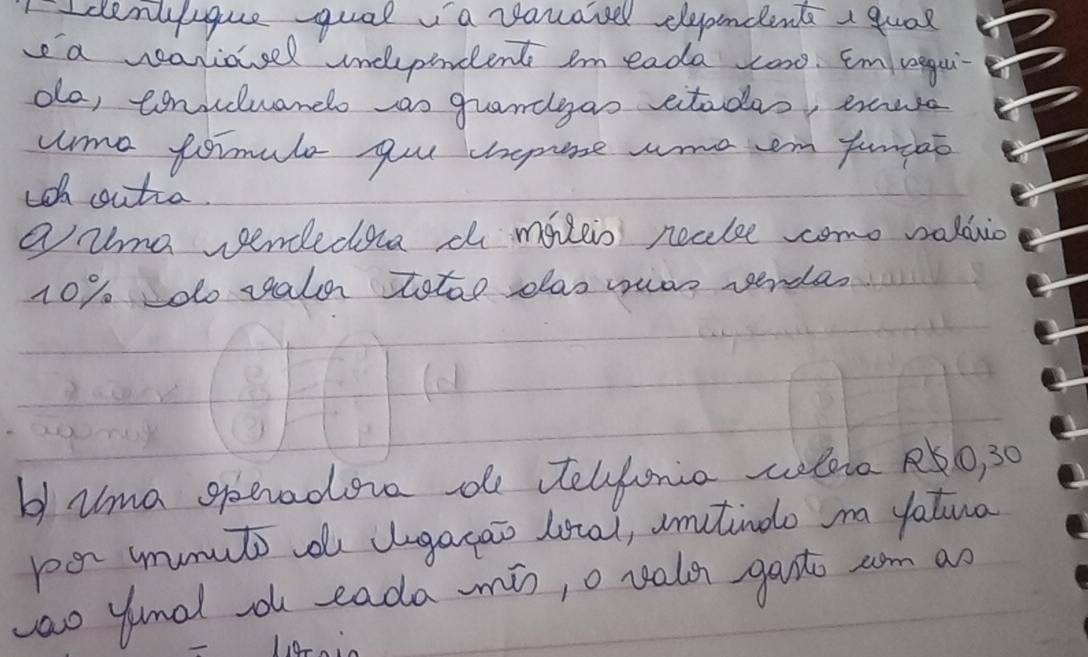 1-Identifique qual é a variável dependente e qual
é a variável independente em cada caso. Em segui-
da, considerando as grandezas citadas, escreva
uma fórmula que expresse uma em função
da outra.
a) Uma vendedora de móveis recebe como salário
10% do valor total das suas vendas.
b) Uma operadora de telefonia cobra R$ 0,30
por minuto de ligação local, emitindo na fatura
ao final de cada mês, o valor gasto com as
locais